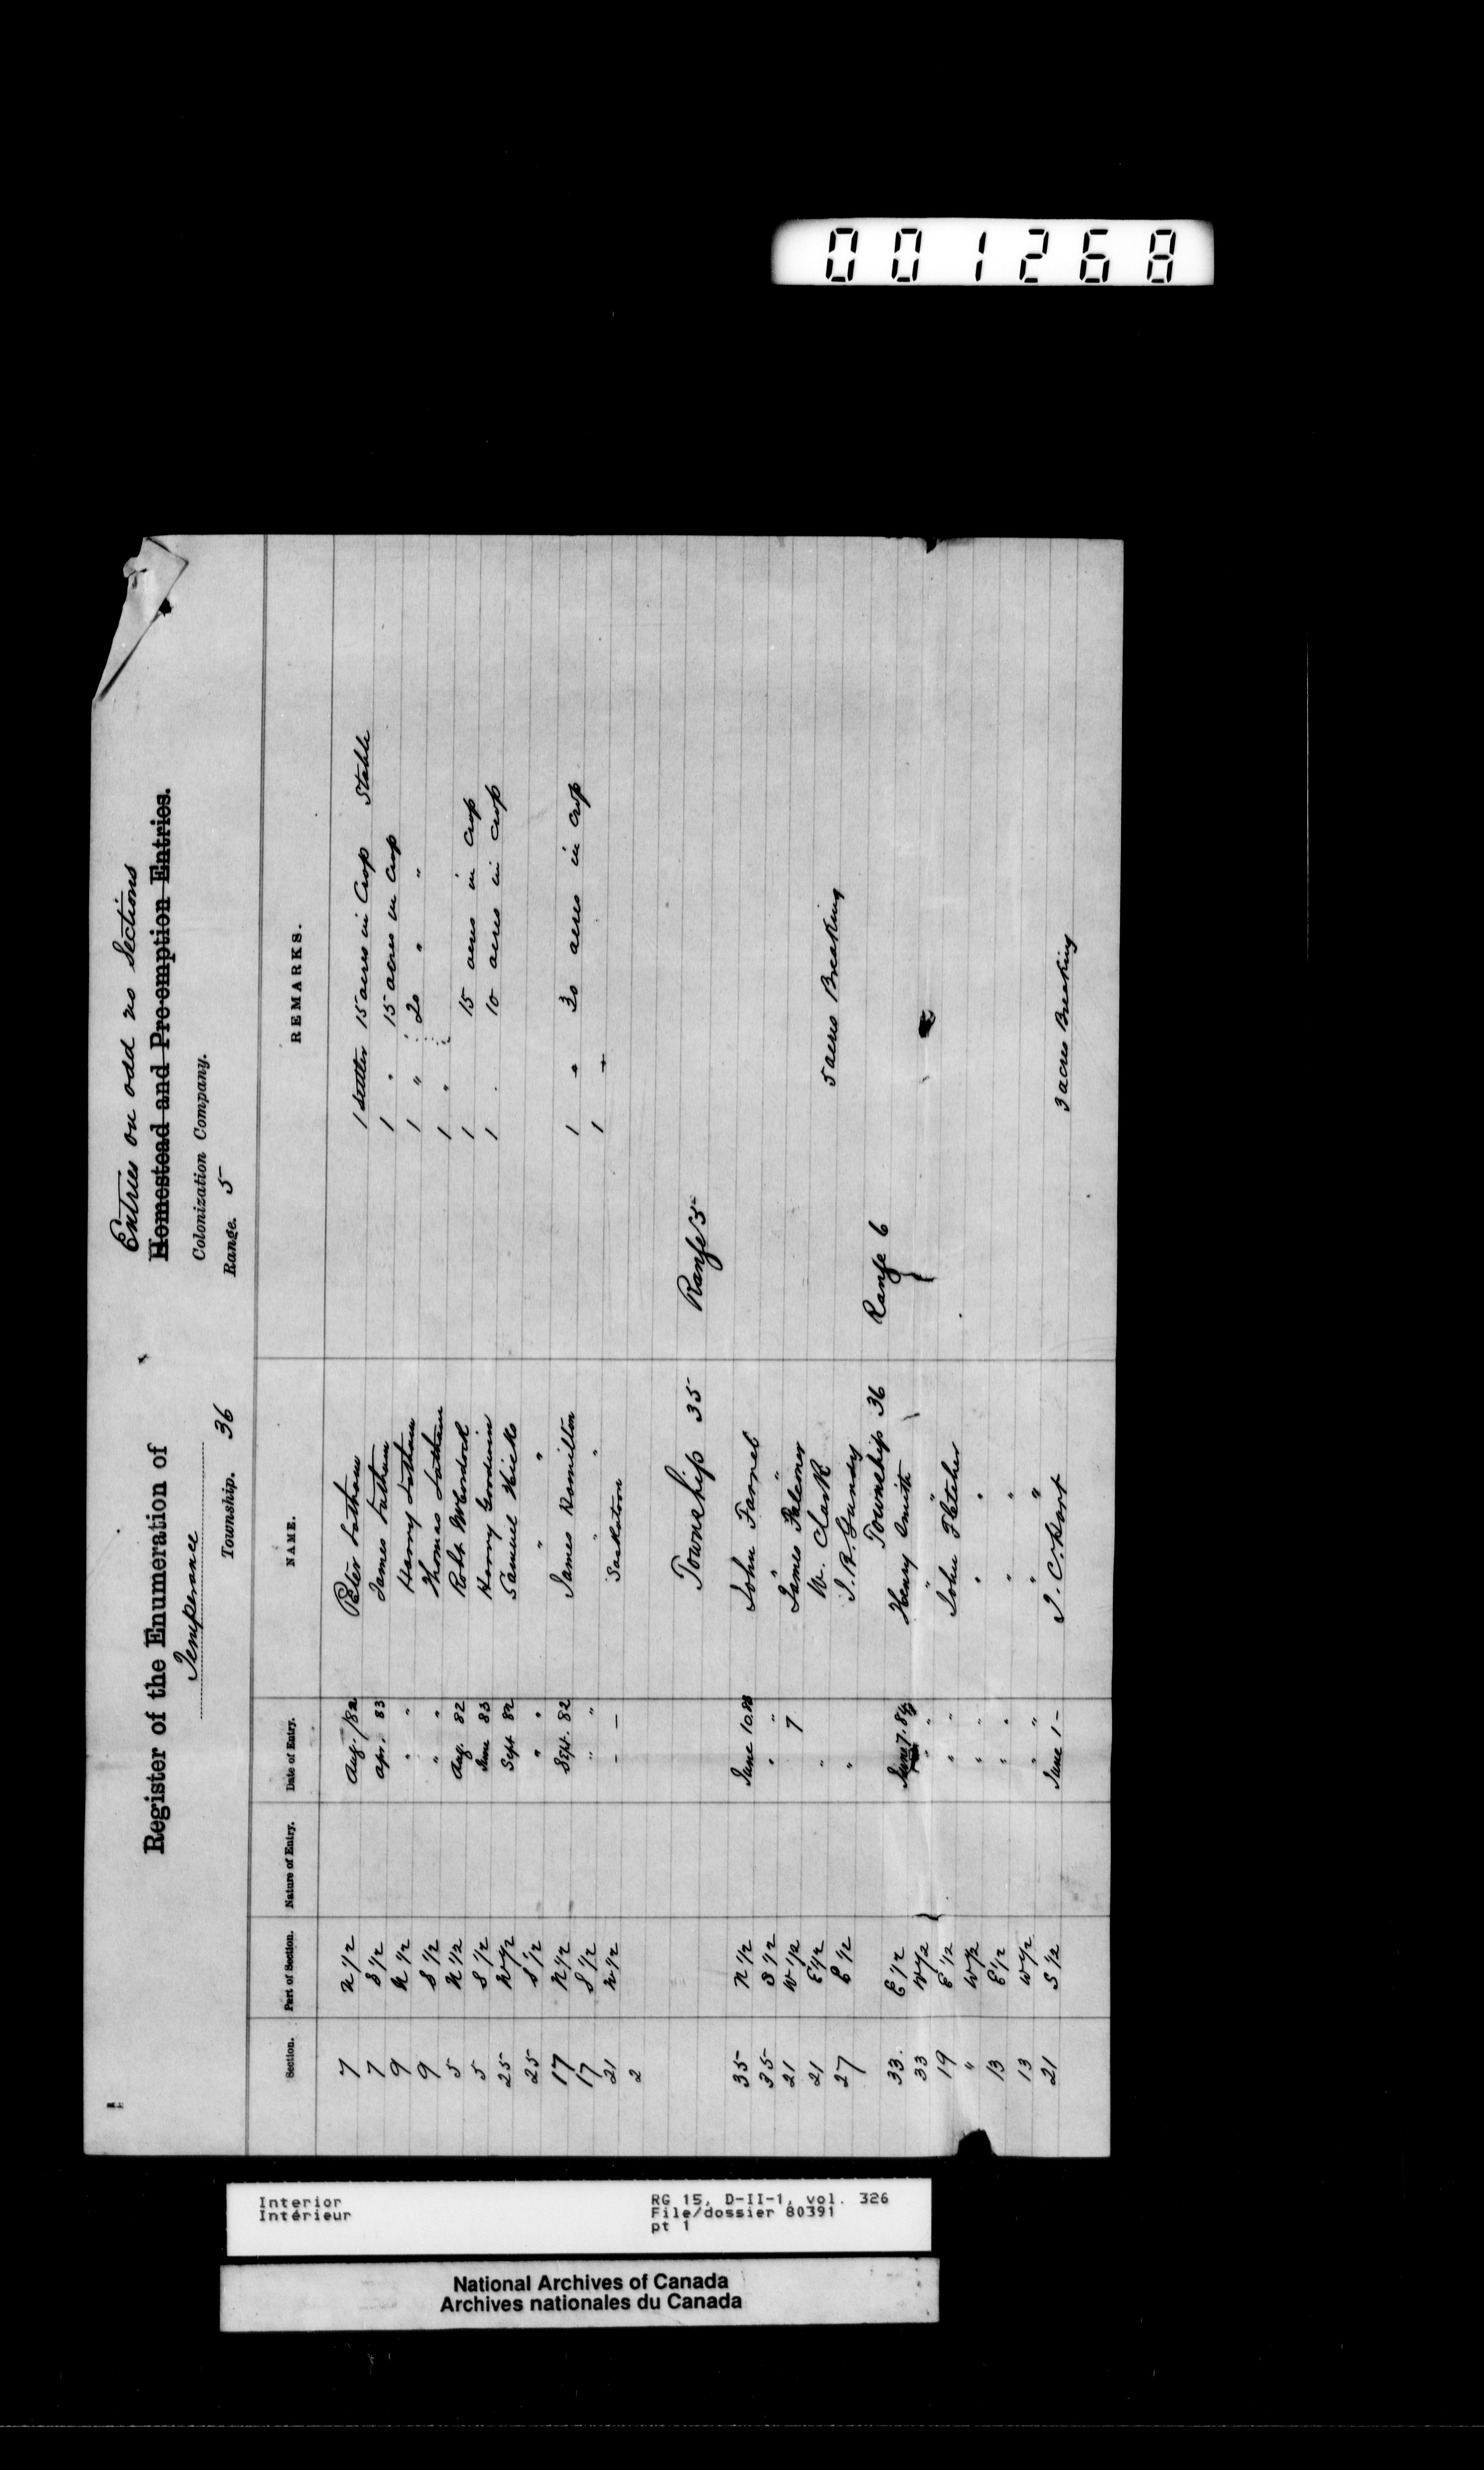 001268
Entries on odd no Sections
Register of the Enumeration of Homestead and Pre-emption Entries.
Temperance Colonization Company.
Township. 36 Range. 5
Section. Part of Section. Nature of Entry. Date of Entry. NAME. REMARKS.
7 N 1/2 Aug. /82 Peter Latham 1 settler 15 acres in Crop Stable
7 S 1/2 apr. 83 James Latham 1 " 15 acres in crop
9 N 1/2 " " Harry Latham 1 " 20 " "
9 S 1/2 " " Thomas Latham 1 "
5 N 1/2 Aug. 82 Robt McCordick 1 15 acres in crop
5 S 1/2 June 83 Harry Goodwin 1 10 acres in crop
25 N 1/2 Sept 82 Samuel Hicks
25 S 1/2 " " " "
17 N 1/2 Sept. 82 James Hamilton 1 " 30 acres in crop
17 S 1/2 " " " " 1 "
21 N 1/2 - - Saskatoon
2
Township 35 Range 5
35 N 1/2 June 10. John Farnel
35 S 1/2 " " " "
21 W 1/2 7 James Falconer
21 E 1/2 " W. Clark
27 E 1/2 " J. R. Gundy 5 acres Breaking
Township 36 Range 6
33. E 1/2 June 7. 84 Henry Smith
33 W 1/2 " " " "
19 E 1/2 " " John Fletcher
" W 1/2 " " " "
13 E 1/2 " " " "
13 W 1/2 " " " "
21 S 1/2 June 1 - J. C. 3 acres Breaking
Interior
Intérieur
RG 15, D-II-1, vol. 326
File/dossier 80391
pt 1
National Archives of Canada
Archives nationales du Canada